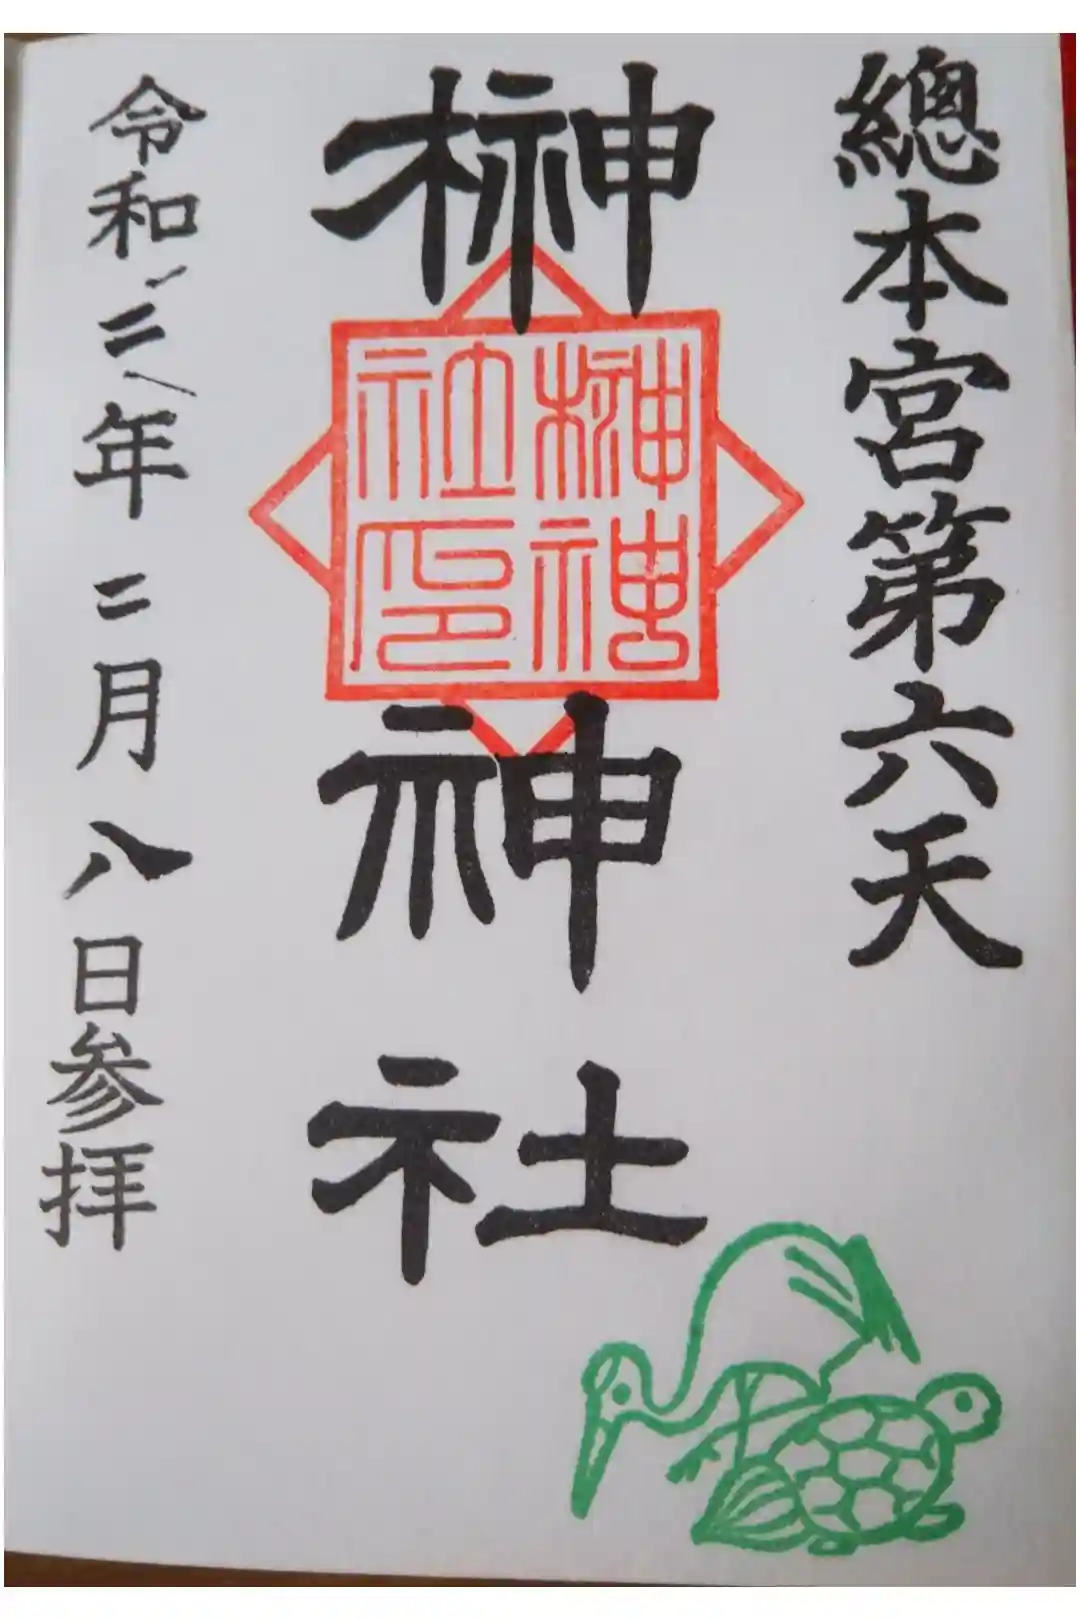 總本宮第六天
榊神社
榊神
社印
令和二年二月八日参拝